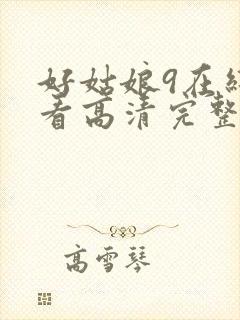 好姑娘9在线
看高清完整
高雪琴